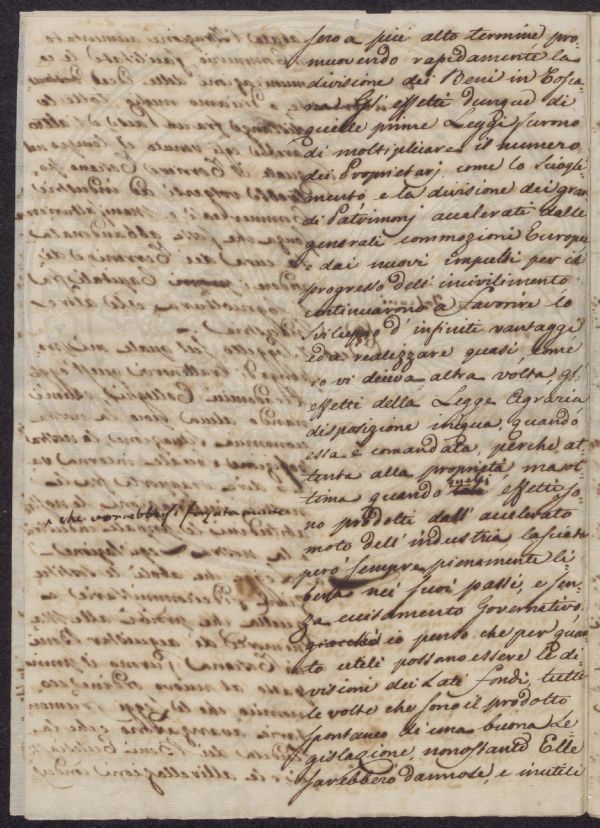 fero a più alto termine pro-
muovendo rapidamente la
divisione dei Beni in Tosca-
na. Gl'effetti dunque di
quelle prime Leggi furono
di moltiplicare il numero
dei Proprietarj, come lo Sciogli-
mento, e la divisione dei gran-
di Patrimonj accelerati dalle
generali commozioni Europee
e dai nuovi impulsi per il
progresso dell'incivilimento
continuarono a favorire lo
Sviluppo d'infiniti vantaggi
ed a realizzare quasi, come
io vi diceva altra volta gl'
effetti della Legge Agraria
disposizione iniqua, quando
essa è comandata, perchè at-
tenta alla proprietà ma ot-
tima quando questi effetti so-
no prodotti dall'accelerato
moto dell'industria, lasciata
però sempre pienamente li-
bera nei suoi passi, e sen-
za eccitamento Governativo,
giacchè io penso, che per quan-
to utili possano essere le di-
visioni dei Lati fondi, tutte
le volte che sono il prodotto
spontaneo di una buona Le-
gislazione, nonostante Elle
sarebbero dannose, e inutili
che vorrebbersi